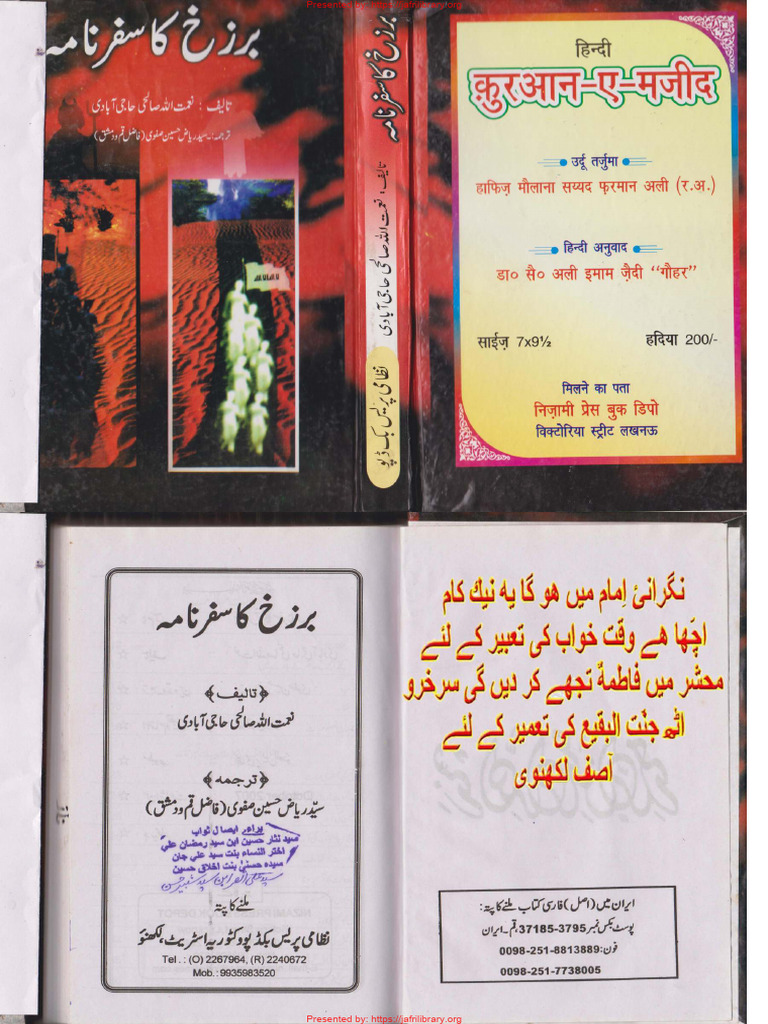 Presented by: https://jafrilibrary.org
برزخ کا سفر نامہ
تالیف : نعمت اللہ صالحی حاجی آبادی
ترجمہ :۔ سید ریاض حسین صفوی (فاضل قم و دمشق)
برزخ کا سفر نامہ
تالیف : نعمت اللہ صالحی حاجی آبادی
نظامی پریس بک ڈپو
हिन्दी
क़ुरआन-ए-मजीद
उर्दू तर्जुमा
हाफिज़ मौलाना सय्यद फ़रमान अली (र.अ.)
हिन्दी अनुवाद
डा० सै० अली इमाम ज़ैदी "गौहर"
साईज़ 7x9½
हदिया 200/-
मिलने का पता
निज़ामी प्रेस बुक डिपो
विक्टोरिया स्ट्रीट लखनऊ
برزخ کا سفر نامہ
﴿تالیف﴾
نعمت اللہ صالحی حاجی آبادی
﴿ترجمہ﴾
سیّد ریاض حسین صفوی (فاضل قم و دمشق)
برائے ایصال ثواب
سید نثار حسین ابن سید رمضان علی
اختر النساء بنت سید علی جان
سیدہ حسنیٰ بنت اخلاق حسین
ملنے کا پتہ
نظامی پریس بکڈپو وکٹوریہ اسٹریٹ، لکھنؤ
Tel. : (O) 2267964, (R) 2240672
Mob. : 9935983520
نگرانئ اِمام میں هو گا یه نیك کام
اچّھا هے وقت خواب کی تعبیر کے لئے
محشر میں فاطمهٔ تجھے کر دیں گی سرخرو
اٹھ جنّت البقیع کی تعمیر کے لئے
آصف لکھنوی
ایران میں (اصل) فارسی کتاب ملنے کا پتہ :
پوسٹ بکس نمبر 3795-37185، قم۔ ایران
فون: 0098-251-8813889
0098-251-7738005
Presented by: https://jafrilibrary.org